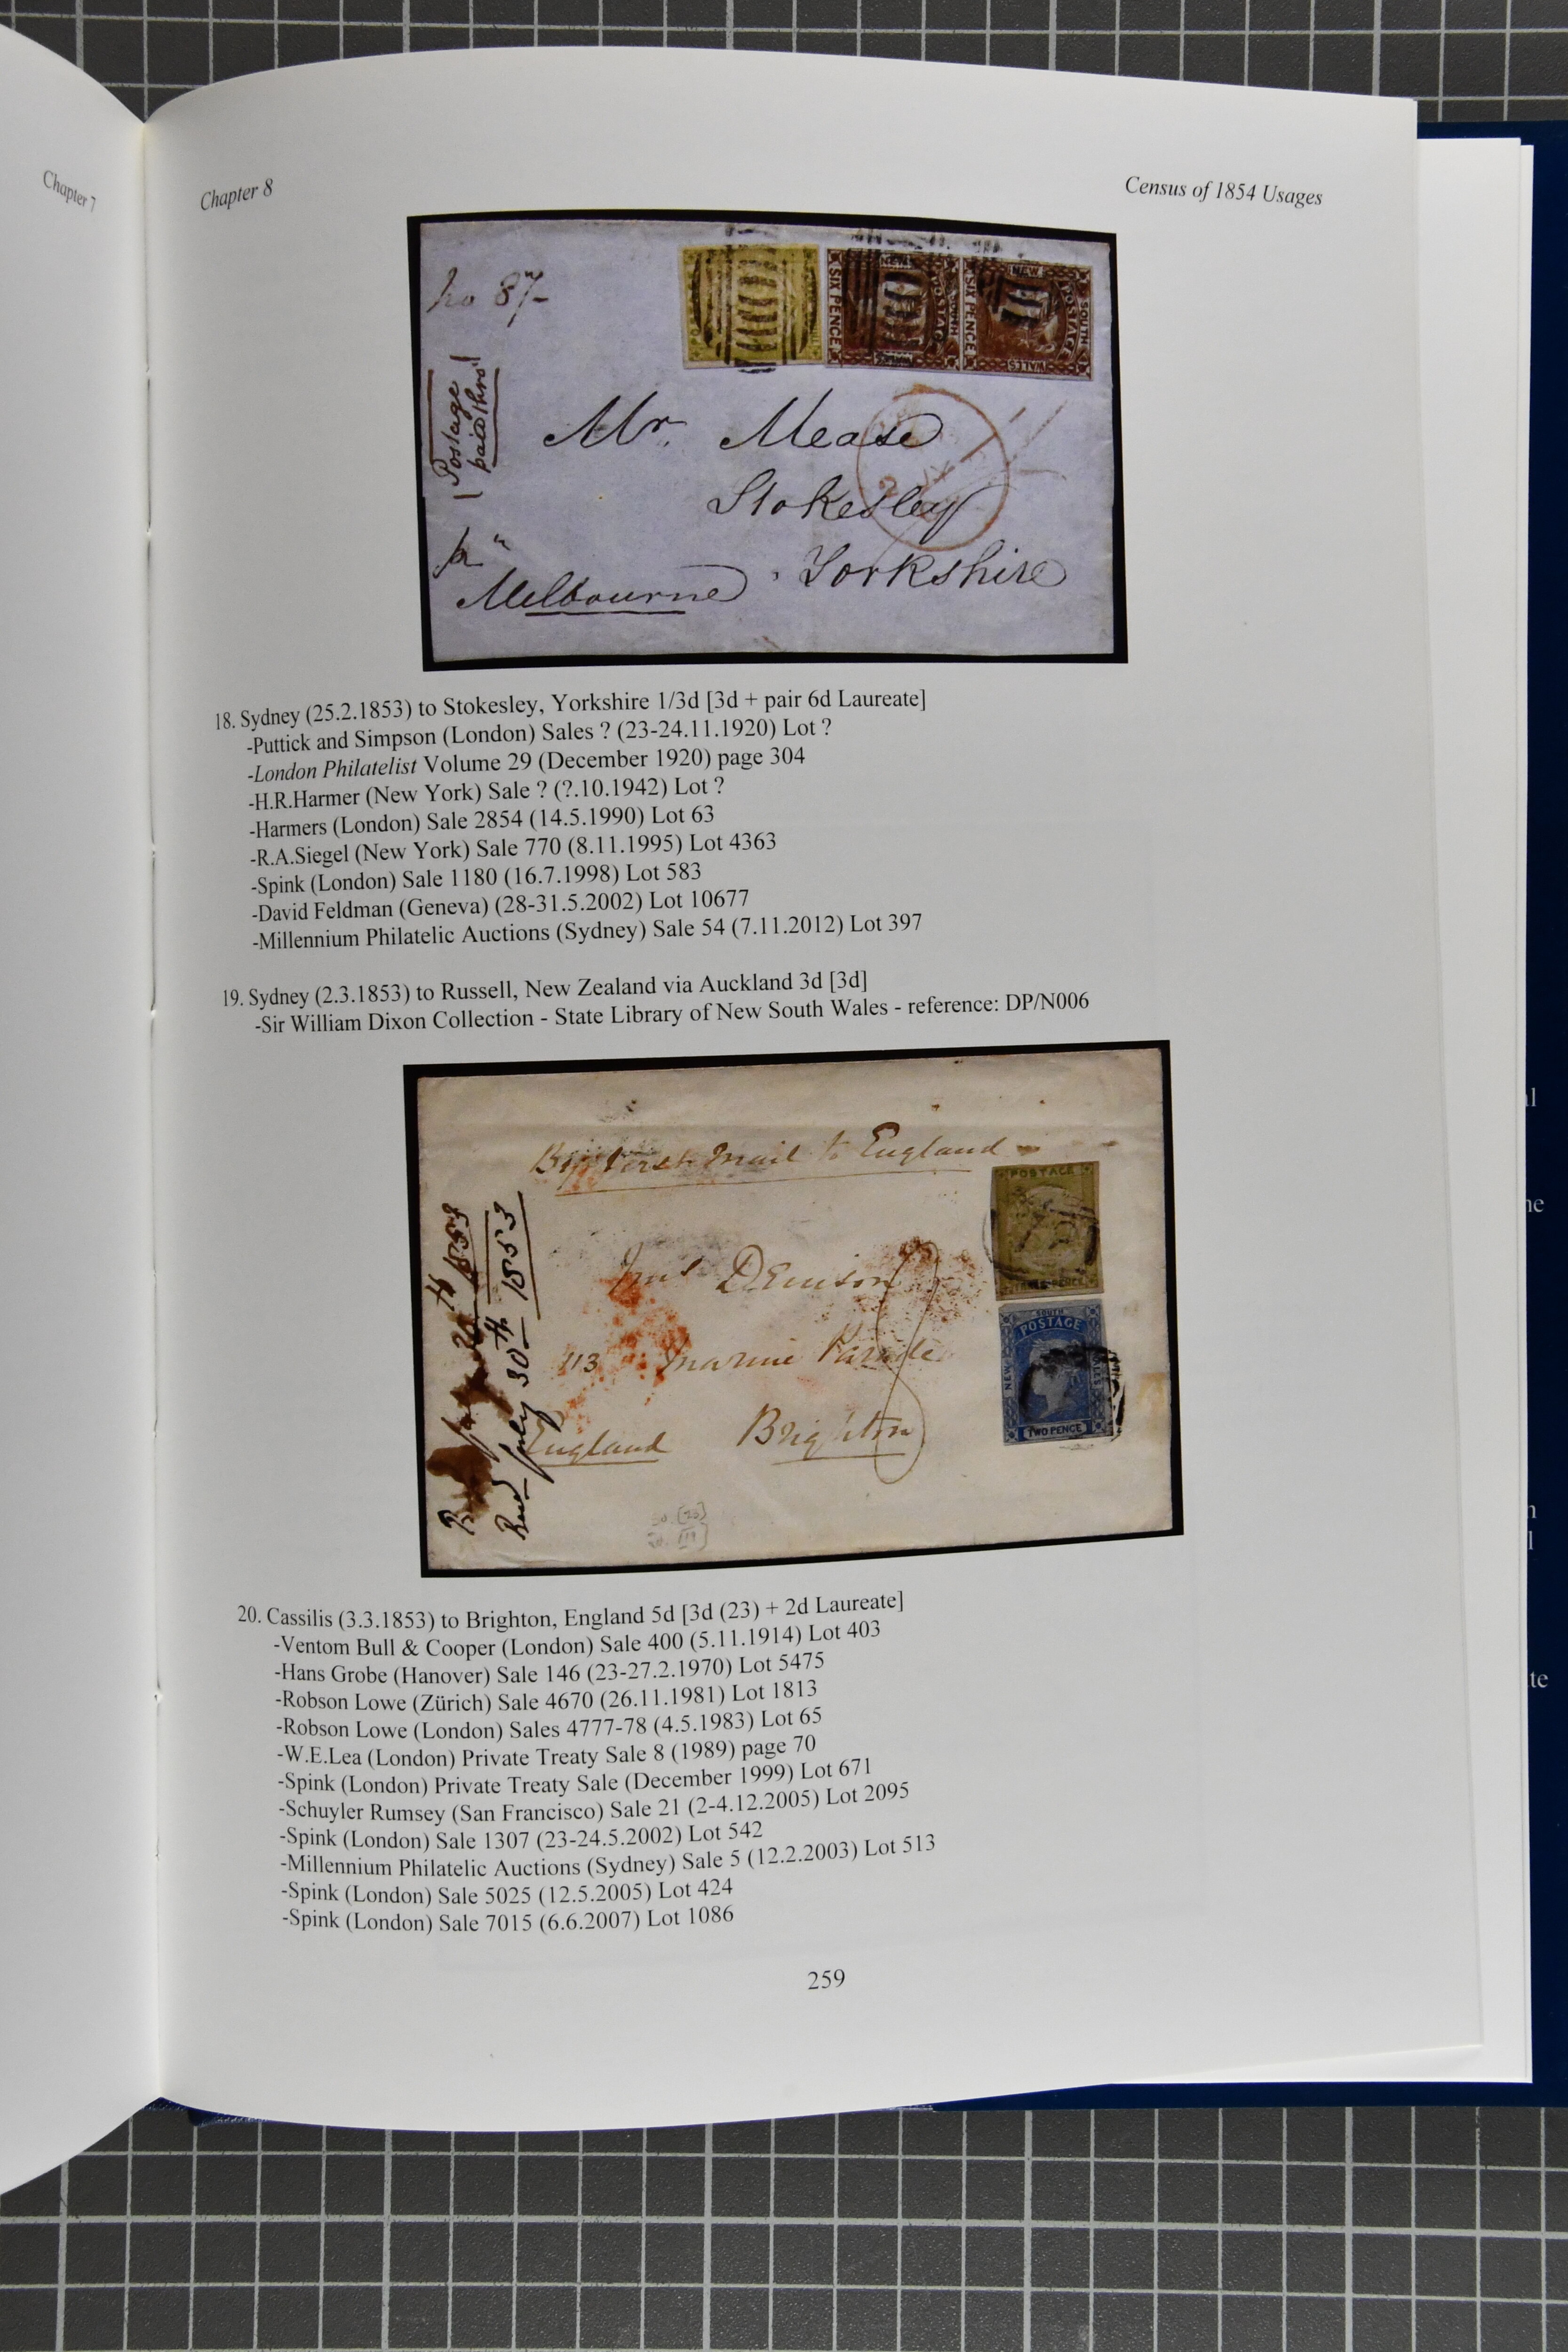 Chapter 7
Chapter 8
Census of 1854 Usages
no 87-
Postage
paid thro'
Mr. Mease
Stokesley
Yorkshire
Melbourne
SIX PENCE NEW SOUTH WALES POSTAGE
SIX PENCE NEW SOUTH WALES POSTAGE
18. Sydney (25.2.1853) to Stokesley, Yorkshire 1/3d [3d + pair 6d Laureate]
-Puttick and Simpson (London) Sales ? (23-24.11.1920) Lot ?
-London Philatelist Volume 29 (December 1920) page 304
-H.R.Harmer (New York) Sale ? (?.10.1942) Lot ?
-Harmers (London) Sale 2854 (14.5.1990) Lot 63
-R.A.Siegel (New York) Sale 770 (8.11.1995) Lot 4363
-Spink (London) Sale 1180 (16.7.1998) Lot 583
-David Feldman (Geneva) (28-31.5.2002) Lot 10677
-Millennium Philatelic Auctions (Sydney) Sale 54 (7.11.2012) Lot 397
19. Sydney (2.3.1853) to Russell, New Zealand via Auckland 3d [3d]
-Sir William Dixon Collection - State Library of New South Wales - reference: DP/N006
By first Mail to England
Mrs Denison
113 Marine Parade
Brighton
England
1853
Recd July 30th 1853
POSTAGE
THREE PENCE
SOUTH
POSTAGE
NEW
WALES
TWO PENCE
20. Cassilis (3.3.1853) to Brighton, England 5d [3d (23) + 2d Laureate]
-Ventom Bull & Cooper (London) Sale 400 (5.11.1914) Lot 403
-Hans Grobe (Hanover) Sale 146 (23-27.2.1970) Lot 5475
-Robson Lowe (Zürich) Sale 4670 (26.11.1981) Lot 1813
-Robson Lowe (London) Sales 4777-78 (4.5.1983) Lot 65
-W.E.Lea (London) Private Treaty Sale 8 (1989) page 70
-Spink (London) Private Treaty Sale (December 1999) Lot 671
-Schuyler Rumsey (San Francisco) Sale 21 (2-4.12.2005) Lot 2095
-Spink (London) Sale 1307 (23-24.5.2002) Lot 542
-Millennium Philatelic Auctions (Sydney) Sale 5 (12.2.2003) Lot 513
-Spink (London) Sale 5025 (12.5.2005) Lot 424
-Spink (London) Sale 7015 (6.6.2007) Lot 1086
259